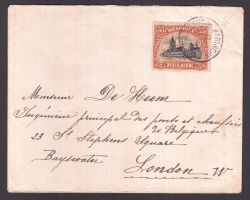 BELGIQUE
35 35
BELGIË
Monsieur De Heem
Ingénieur principal des ponts et chaussées
de Belgique
23 St Stephens Square
Bayswater
London W